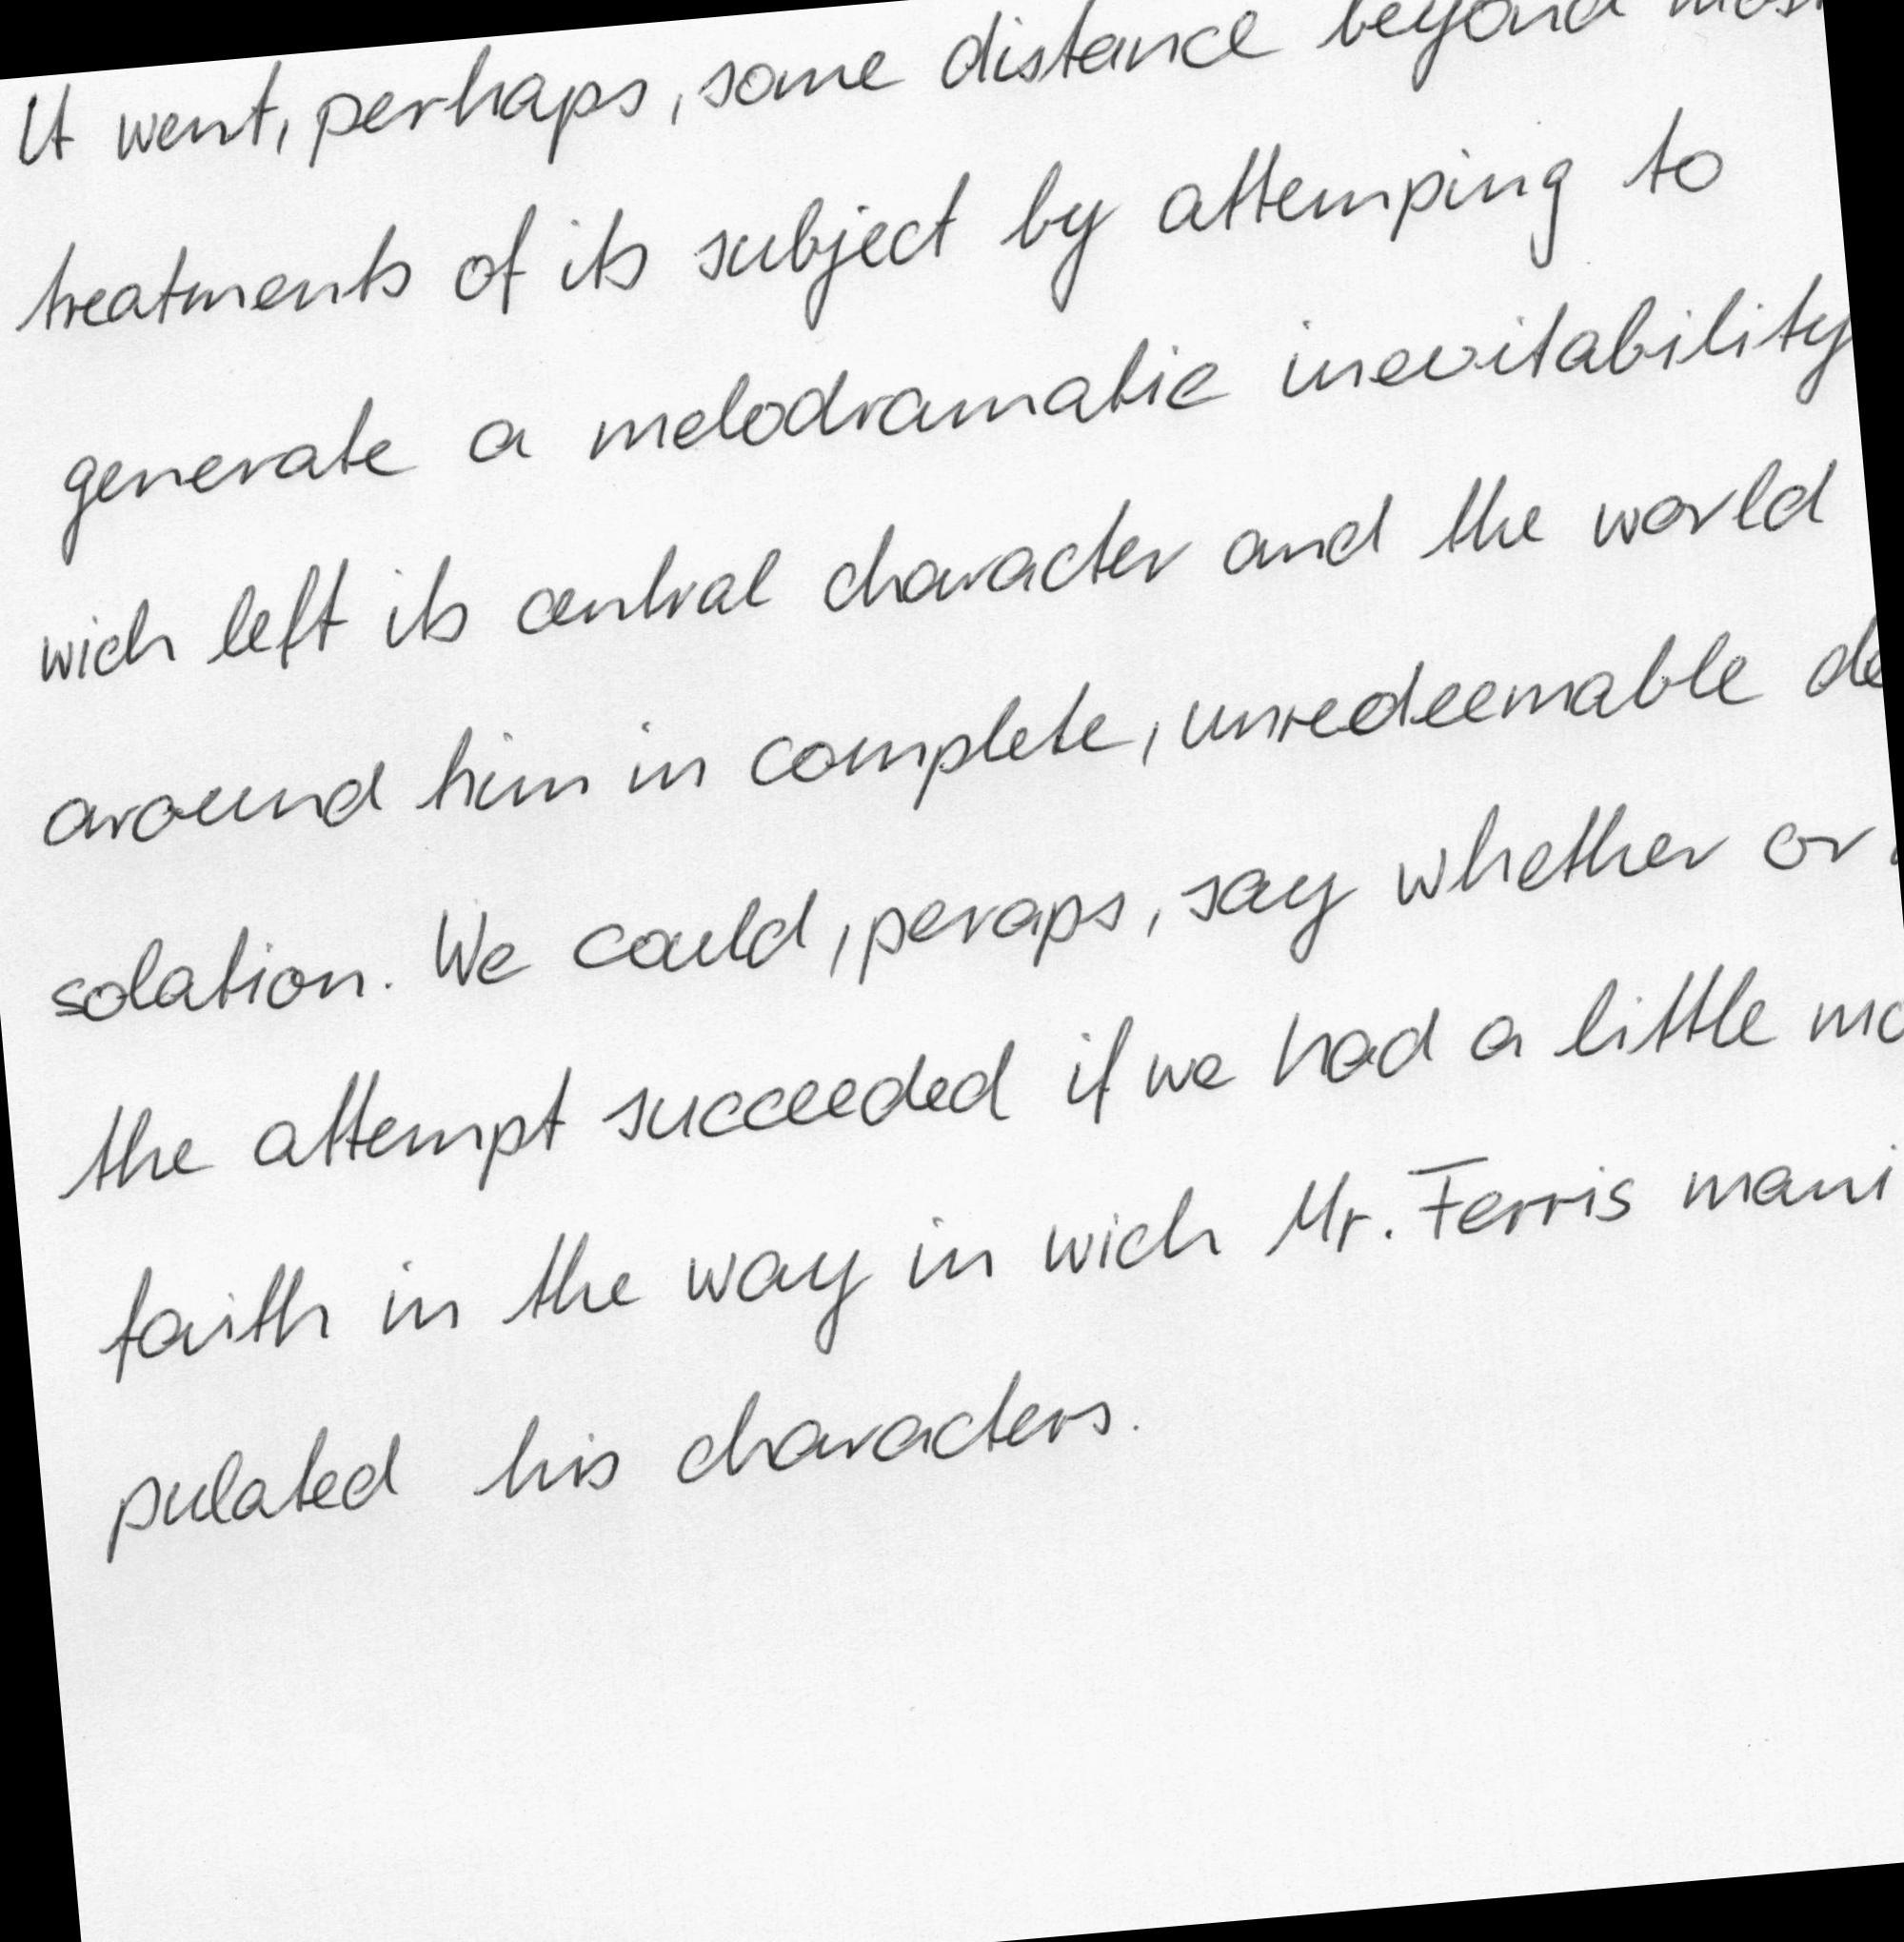 It went, perhaps, some distance beyond most
treatments of its subject by attemping to
generate a melodramatic inevitability
wich left its central character and the world
around him in complete, unredeemable de
solation. We could, peraps, say whether or
the attempt succeeded if we had a little mo
faith in the way in wich Mr. Ferris mani
pulated his characters.